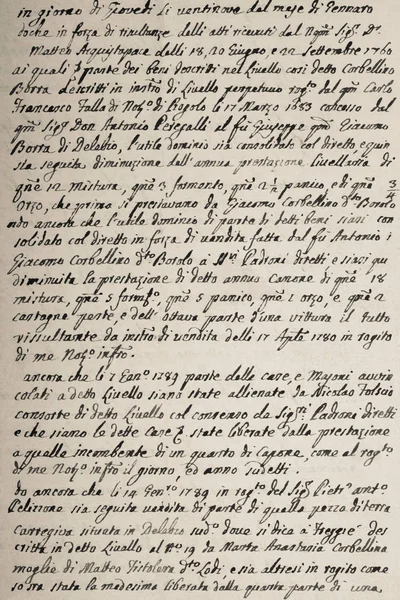 in giorno di Giovedì li ventinove dal mese di Gennaro
in forza di risultanze dalli atti ricevuti dal Nqm. Sigr. Dr.
Matteo Acquistapace dalli 18, 20 Giugno, e 22 Settembre 1760
ai quali parte dei beni descritti nel Livello così detto Corbellino
Borra descritti in instro. di Livello perpetuo rogo. dal qm. Carlo
Francesco Falla di Noto. di Regolo le 17 Marzo 1683 concesso dal
qm. Sigr. Don Antonio Peregalli al fu Giuseppe qm. Giacomo
Borra di Delabio, l'utile dominio sia consolidato col diretto e quin
sia seguita diminuzione dall'annua prestazione livellaria di
qne. 12 mistura, qne. 3 formento, qne. 2 1/2 panico, e di qne. 3/4
Orzo, che prima si prestavano da Giacomo Corbellino do. Borolo
ndo ancora che l'utile dominio di parte di detti beni siasi con
solidato col diretto in forza di vendita fatta dal fu Antonio
Giacomo Corbellino dto. Borolo a Padroni diretti e siasi qu
diminuita la prestazione di detto annuo Canone di qne. 18
mistura, qne. 5 formto., qne. 5 panico, qne. 1 orzo, e qne. 2
castagne peste, e dell'ottava parte d'una vittura il tutto
risultante da instro. di vendita delli 17 Aple. 1780 in rogito
di me Noto. infro.
ancora che li 7 Genro. 1789 parte delle case, e Masoni auvin
colati a detto Livello siano state allienate da Nicolao
consorte di detto Livello col consenso da Sigri. Padroni diretti
e che siano le dette Case state liberate dalla prestazione
a quelle incombente di un quarto di Capone, come al rogto.
di me Noto. infro. il giorno, ed anno sudetti.
do ancora che li 14 Genro. 1789 in rogo. del Sigr. Pietr' Anto.
Pelizzone sia seguita vendita di parte di quella pezza di terra
Campiva situata in Delabio sudo. dove si dica à des
critta in detto Livello al No. 19 da Marta Anastasia Corbellina
moglie di Matteo Fistolera dto. Lodi e sia altresì in rogito come
sovra stata la medesima liberata dalla quarta parte di una